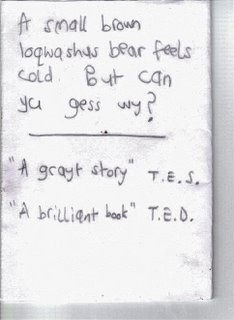 A small brown
loqwashus bear feels
cold. But can
yu gess wy?
"A grayt story" T.E.S.
"A brilliant book" T.E.D.